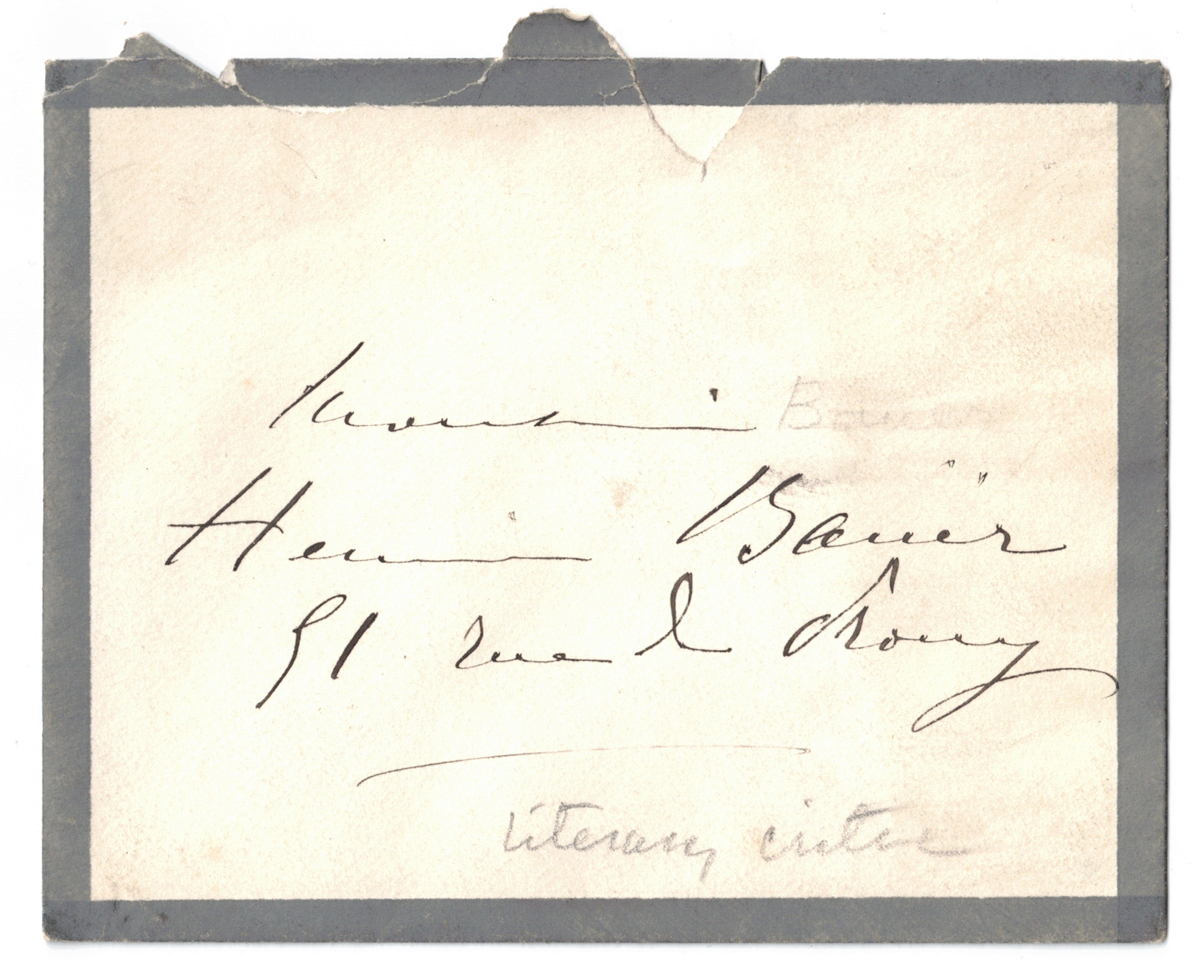 Monsieur Bauer
Henri Bauër
51 rue de Prony
Literary critic